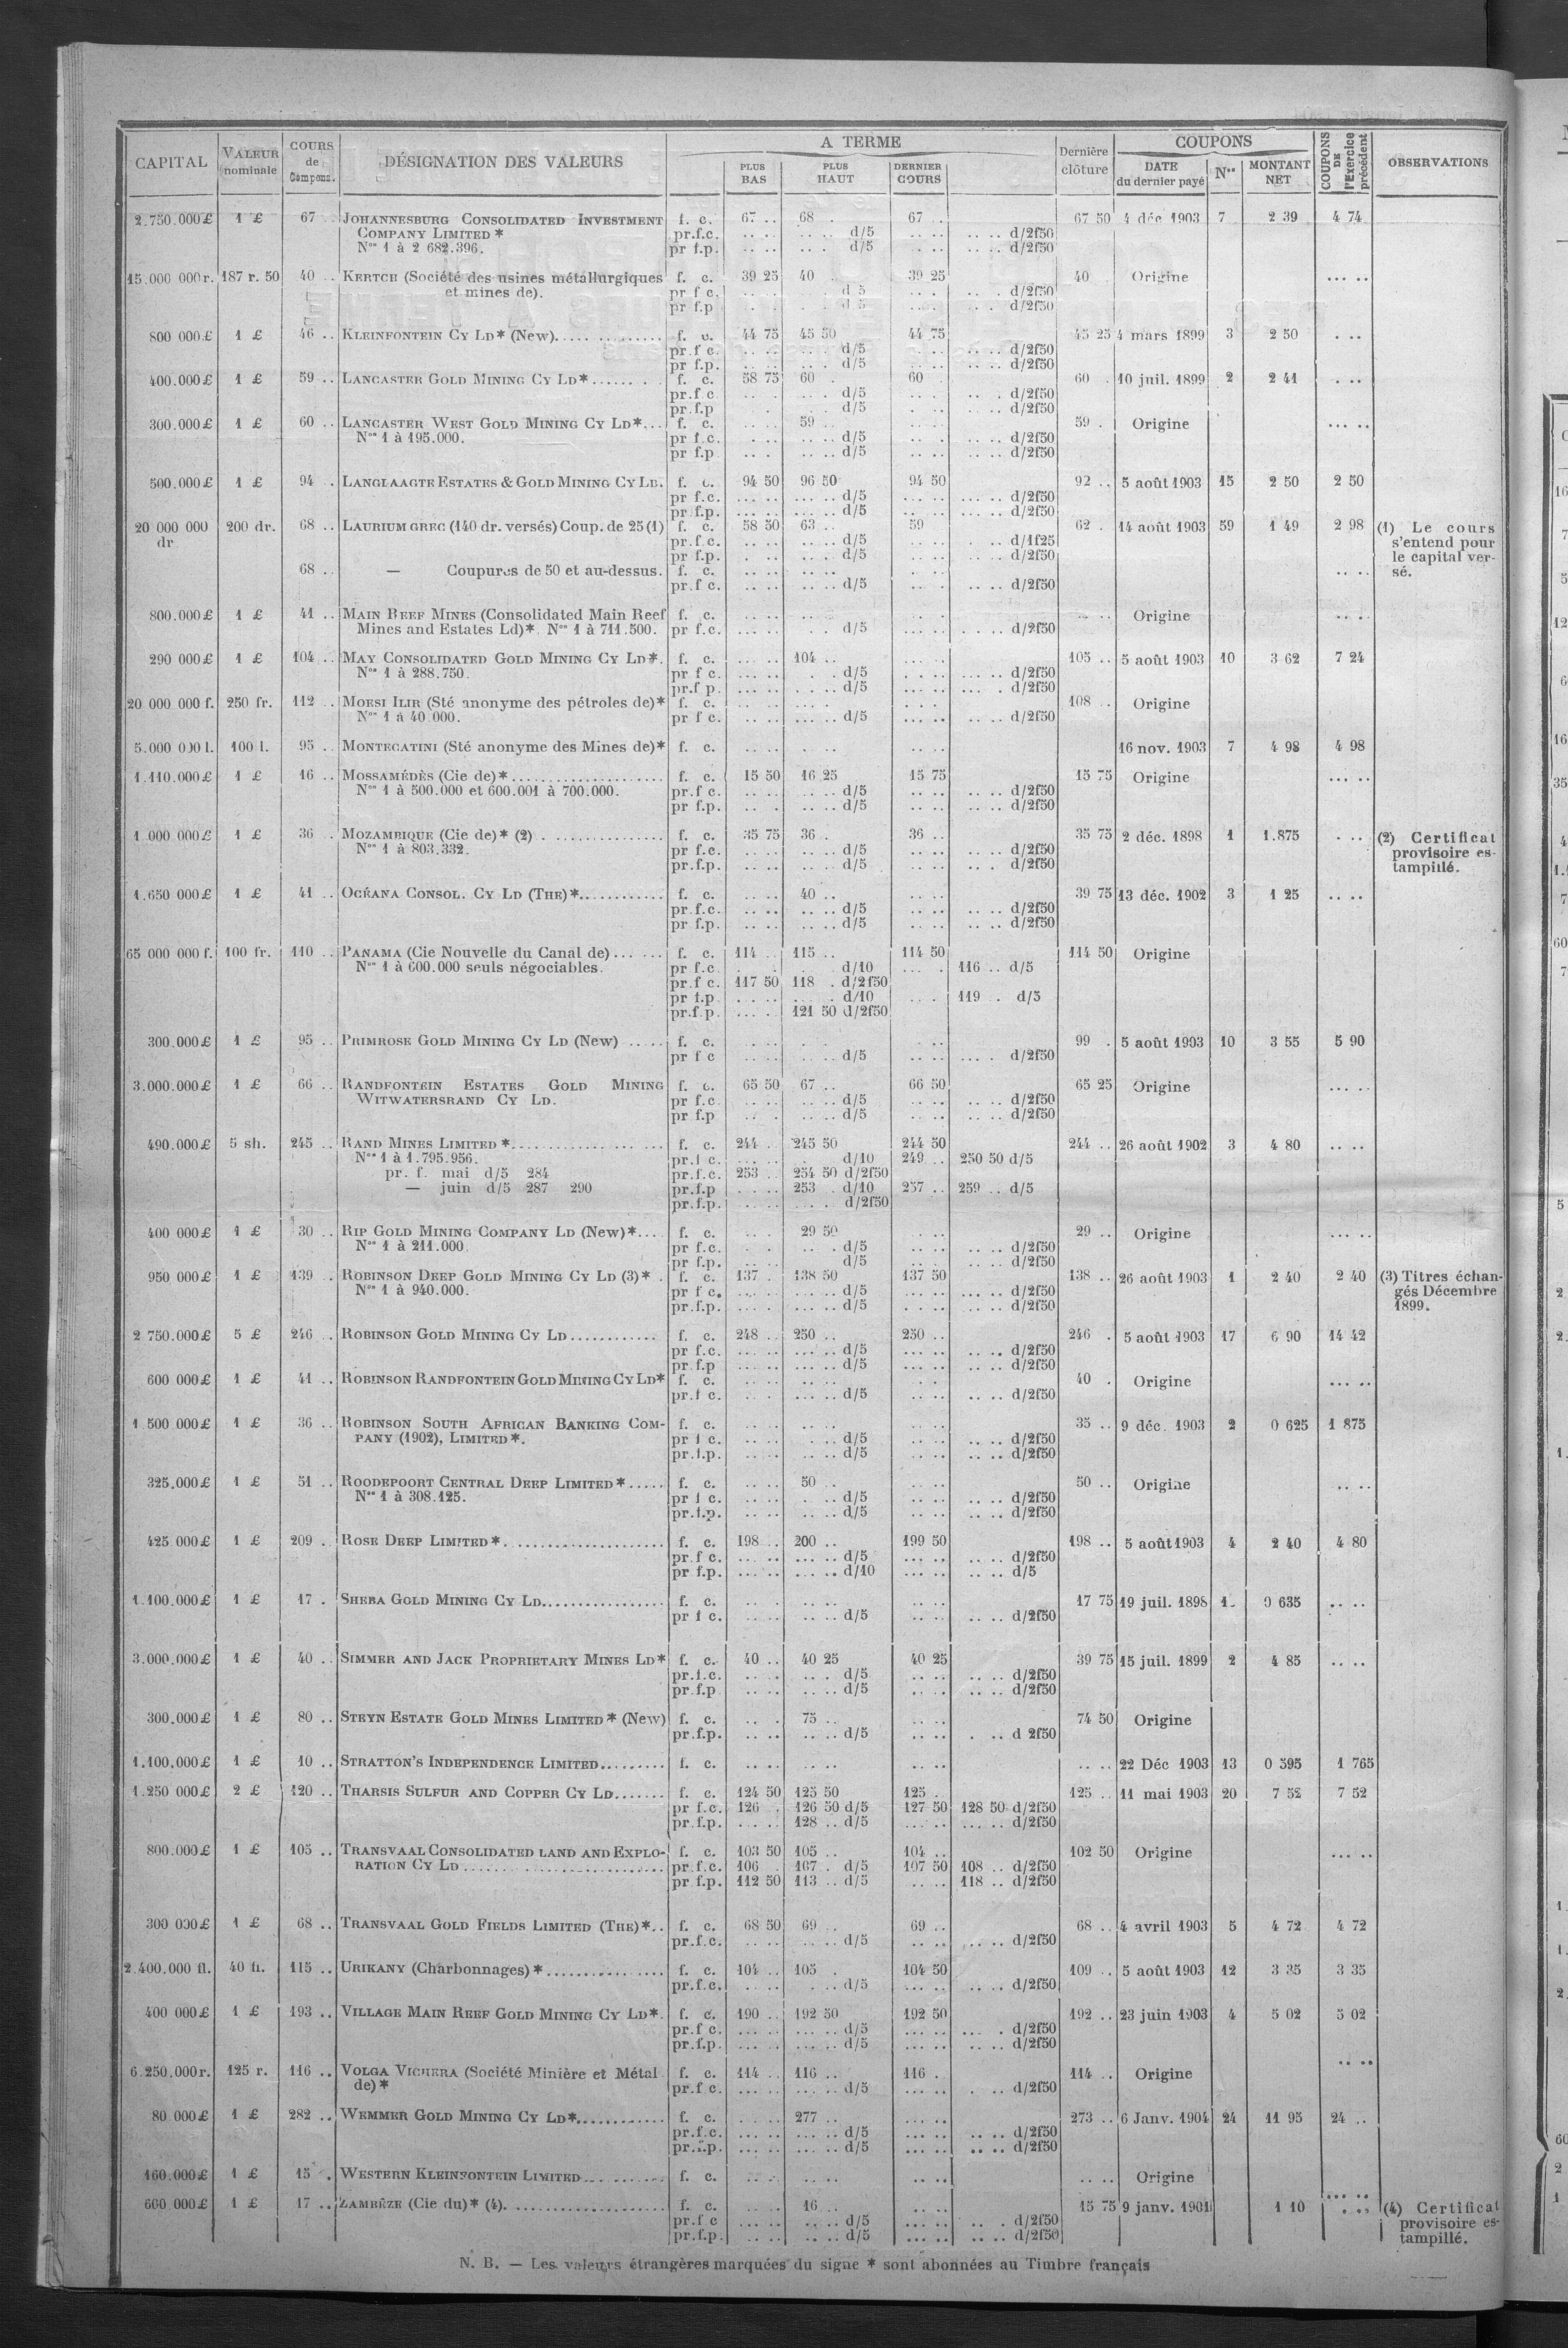 CAPITAL VALEUR nominale COURS de Compens. DÉSIGNATION DES VALEURS A TERME PLUS BAS PLUS HAUT DERNIER COURS Dernière clôture COUPONS DATE du dernier payé Nos MONTANT NET COUPONS DE l'Exercice précédent OBSERVATIONS
2.750.000£ 1 £ 67 .. JOHANNESBURG CONSOLIDATED INVESTMENT f. c. 67 .. 68 . 67 . 67 50 4 déc 1903 7 2 39 4 74
COMPANY LIMITED * pr.f.c. .. .. .. .. d/5 .. .. .. .. d/2f50
Nos 1 à 2 682.396. pr f.p. .. .. .. .. d/5 .. .. .. .. d/2f50
15.000 000r. 187 r. 50 40 .. KERTCH (Société des usines métallurgiques f. c. 39 25 40 . 39 25 40 Origine ... ..
et mines de). pr f c. d 5 d/2f50
pr f.p d 5 d/2f50
800 000£ 1 £ 46 .. KLEINFONTEIN CY LD* (New)..... f. c. 44 75 45 50 44 75 45 25 4 mars 1899 3 2 50 . ..
pr.f c. d/5 d/2f50
pr f.p. d/5 d/2f50
400.000£ 1 £ 59 .. LANCASTER GOLD MINING CY LD*..... f. c. 58 75 60 . 60 . 60 . 10 juil. 1899 2 2 41 . ..
pr.f c. d/5 d/2f50
pr.f.p d/5 d/2f50
300.000£ 1 £ 60 .. LANCASTER WEST GOLD MINING CY LD*... f. c. 59 .. 59 . Origine ... ..
Nos 1 à 195.000. pr f.c. d/5 d/2f50
pr f.p d/5 d/2f50
500.000£ 1 £ 94 . LANGLAAGTE ESTATES & GOLD MINING CY LD. f. c. 94 50 96 50 94 50 92 .. 5 août 1903 15 2 50 2 50
pr f.c. d/5 d/2f50
pr f.p. d/5 d/2f50
20 000 000 200 dr. 68 .. LAURIUM GREC (140 dr. versés) Coup. de 25 (1) f. c. 58 50 63 .. 59 62 . 14 août 1903 59 1 49 2 98 (1) Le cours
dr pr.f.c. d/5 d/1f25 s'entend pour
pr f.p. d/5 d/2f50 le capital ver-
68 .. — Coupures de 50 et au-dessus. f. c. .. .. sé.
pr.f c. d/5 d/2f50
800.000£ 1 £ 41 .. MAIN REEF MINES (Consolidated Main Reef f. c. Origine .. ..
Mines and Estates Ld)*. Nos 1 à 711.500. pr f.c. d/5 d/2f50
290 000£ 1 £ 104 .. MAY CONSOLIDATED GOLD MINING CY LD*. f. c. 104 .. 105 .. 5 août 1903 10 3 62 7 24
Nos 1 à 288.750. pr f c. d/5 d/2f50
pr.f p. d/5 d/2f50
20 000 000 f. 250 fr. 112 .. MORSI ILIR (Sté anonyme des pétroles de)* f. c. 108 .. Origine
Nos 1 à 40 000. pr f c. d/5 d/2f50
5.000 000 l. 100 l. 95 .. MONTECATINI (Sté anonyme des Mines de)* f. c. 16 nov. 1903 7 4 98 4 98
1.110.000£ 1 £ 16 .. MOSSAMÉDÈS (Cie de)*..... f. c. 15 50 16 25 15 75 15 75 Origine ... ..
Nos 1 à 500.000 et 600.001 à 700.000. pr.f c. d/5 d/2f50
pr f.p. d/5 d/2f50
1.000 000£ 1 £ 36 . MOZAMBIQUE (Cie de)* (2) ..... f. c. 35 75 36 . 36 .. 35 75 2 déc. 1898 1 1.875 . .. (2) Certificat
Nos 1 à 803.332. pr f.c. d/5 d/2f50 provisoire es-
pr.f.p. d/5 d/2f50 tampillé.
1.650 000£ 1 £ 41 .. OCÉANA CONSOL. CY LD (THE)*..... f. c. 40 .. 39 75 13 déc. 1902 3 1 25 .. ..
pr.f.c. d/5 d/2f50
pr f.p. d/5 d/2f50
65 000 000 f. 100 fr. 110 .. PANAMA (Cie Nouvelle du Canal de)..... f. c. 114 .. 115 .. 114 50 114 50 Origine
Nos 1 à 600.000 seuls négociables. pr f.c. d/10 116 .. d/5
pr.f c. 117 50 118 . d/2f50
pr f.p d/10 119 . d/5
pr.f.p. 121 50 d/2f50
300.000£ 1 £ 95 .. PRIMROSE GOLD MINING CY LD (New) ..... f. c. 99 . 5 août 1903 10 3 55 5 90
pr f c d/5 d/2f50
3.000.000£ 1 £ 66 .. RANDFONTEIN ESTATES GOLD MINING f. c. 65 50 67 .. 66 50 65 25 Origine ... ..
WITWATERSRAND CY LD. pr f.c. d/5 d/2f50
pr f.p d/5 d/2f50
490.000£ 5 sh. 245 .. RAND MINES LIMITED *..... f. c. 244 .. 245 50 244 50 244 .. 26 août 1902 3 4 80 .. ..
Nos 1 à 1.795.956. pr.f c. d/10 249 .. 250 50 d/5
pr. f. mai d/5 284 pr.f.c. 253 .. 254 50 d/2f50
— juin d/5 287 290 pr.f.p 253 . d/10 257 .. 259 .. d/5
pr.f.p. d/2f50
400 000£ 1 £ 30 .. RIP GOLD MINING COMPANY LD (New)*.... f. c. 29 50 29 .. Origine ... ..
Nos 1 à 211.000. pr f.c. d/5 d/2f50
pr f.p. d/5 d/2f50
950 000£ 1 £ 139 .. ROBINSON DEEP GOLD MINING CY LD (3)* . f. c. 137 . 138 50 137 50 138 .. 26 août 1903 1 2 40 2 40 (3) Titres échan-
Nos 1 à 940.000. pr f c. d/5 d/2f50 gés Décembre
pr.f.p. d/5 d/2f50 1899.
2 750.000£ 5 £ 246 .. ROBINSON GOLD MINING CY LD..... f. c. 248 .. 250 .. 250 .. 246 . 5 août 1903 17 6 90 14 42
pr f.c. d/5 d/2f50
pr.f.p d/5 d/2f50
600 000£ 1 £ 41 .. ROBINSON RANDFONTEIN GOLD MINING CY LD* f. c. 40 . Origine ... ..
pr.f c. d/5 d/2f50
1.500 000£ 1 £ 36 .. ROBINSON SOUTH AFRICAN BANKING COM- f. c. 35 .. 9 déc. 1903 2 0 625 1 875
PANY (1902), LIMITED*. pr f c. d/5 d/2f50
pr.f.p. d/5 d/2f50
325.000£ 1 £ 51 .. ROODEPOORT CENTRAL DEEP LIMITED*..... f. c. 50 .. 50 .. Origine .. ..
Nos 1 à 308.125. pr f c. d/5 d/2f50
pr.f.p. d/5 d/2f50
425 000£ 1 £ 209 . ROSE DEEP LIMITED*..... f. c. 198 .. 200 .. 199 50 198 .. 5 août 1903 4 2 40 4 80
pr.f c. d/5 d/2f50
pr f.p. d/10 d/5
1.100.000£ 1 £ 17 . SHEBA GOLD MINING CY LD..... f. c. 17 75 19 juil. 1898 1. 0 635 .. ..
pr f c. d/5 d/2f50
3.000.000£ 1 £ 40 .. SIMMER AND JACK PROPRIETARY MINES LD* f. c. 40 .. 40 25 40 25 39 75 15 juil. 1899 2 4 85 .. ..
pr.f.c. d/5 d/2f50
pr.f.p d/5 d/2f50
300.000£ 1 £ 80 .. STEYN ESTATE GOLD MINES LIMITED* (New) f. c. 75 .. 74 50 Origine
pr.f.p. d/5 d 2f50
1.100.000£ 1 £ 10 .. STRATTON'S INDEPENDENCE LIMITED..... f. c. .. .. 22 Déc 1903 13 0 595 1 765
1.250 000£ 2 £ 120 .. THARSIS SULFUR AND COPPER CY LD..... f. c. 124 50 125 50 125 . 125 .. 11 mai 1903 20 7 52 7 52
pr f.c. 126 . 126 50 d/5 127 50 128 50 d/2f50
pr.f.p. 128 .. d/5 d/2f50
800.000£ 1 £ 105 .. TRANSVAAL CONSOLIDATED LAND AND EXPLO- f. c. 103 50 105 .. 104 .. 102 50 Origine ... ..
RATION CY LD ..... pr.f.c. 106 . 107 . d/5 107 50 108 .. d/2f50
pr f.p. 112 50 113 .. d/5 118 .. d/2f50
300 000£ 1 £ 68 .. TRANSVAAL GOLD FIELDS LIMITED (THE)*.. f. c. 68 50 69 .. 69 .. 68 .. 4 avril 1903 5 4 72 4 72
pr.f.c. d/5 d/2f50
2.400.000 fl. 40 fl. 115 .. URIKANY (Charbonnages)*..... f. c. 104 .. 105 . 104 50 109 .. 5 août 1903 12 3 35 3 35
pr.f.c. d/5 d/2f50
400 000£ 1 £ 193 .. VILLAGE MAIN REEF GOLD MINING CY LD*. f. c. 190 .. 192 50 192 50 192 .. 23 juin 1903 4 5 02 5 02
pr.f c. d/5 d/2f50
pr.f.p. d/5 d/2f50
6.250.000r. 125 r. 116 .. VOLGA VICHERA (Société Minière et Métal f. c. 114 .. 116 .. 116 . 114 .. Origine .. ..
de)* pr.f c. d/5 d/2f50
80 000£ 1 £ 282 .. WEMMER GOLD MINING CY LD*..... f. c. 277 .. 273 .. 6 Janv. 1904 24 11 95 24 ..
pr.f.c. d/5 d/2f50
pr.f.p. d/5 d/2f50
160.000£ 1 £ 15 . WESTERN KLEINFONTEIN LIMITED..... f. c. .. .. Origine ... ..
600 000£ 1 £ 17 .. ZAMBÈZE (Cie du)* (4)..... f. c. 16 .. 15 75 9 janv. 1901 1 10 . .. (4) Certificat
pr.f c d/5 d/2f50 provisoire es-
pr.f.p. d/5 d/2f50 tampillé.
N. B. — Les valeurs étrangères marquées du signe * sont abonnées au Timbre français